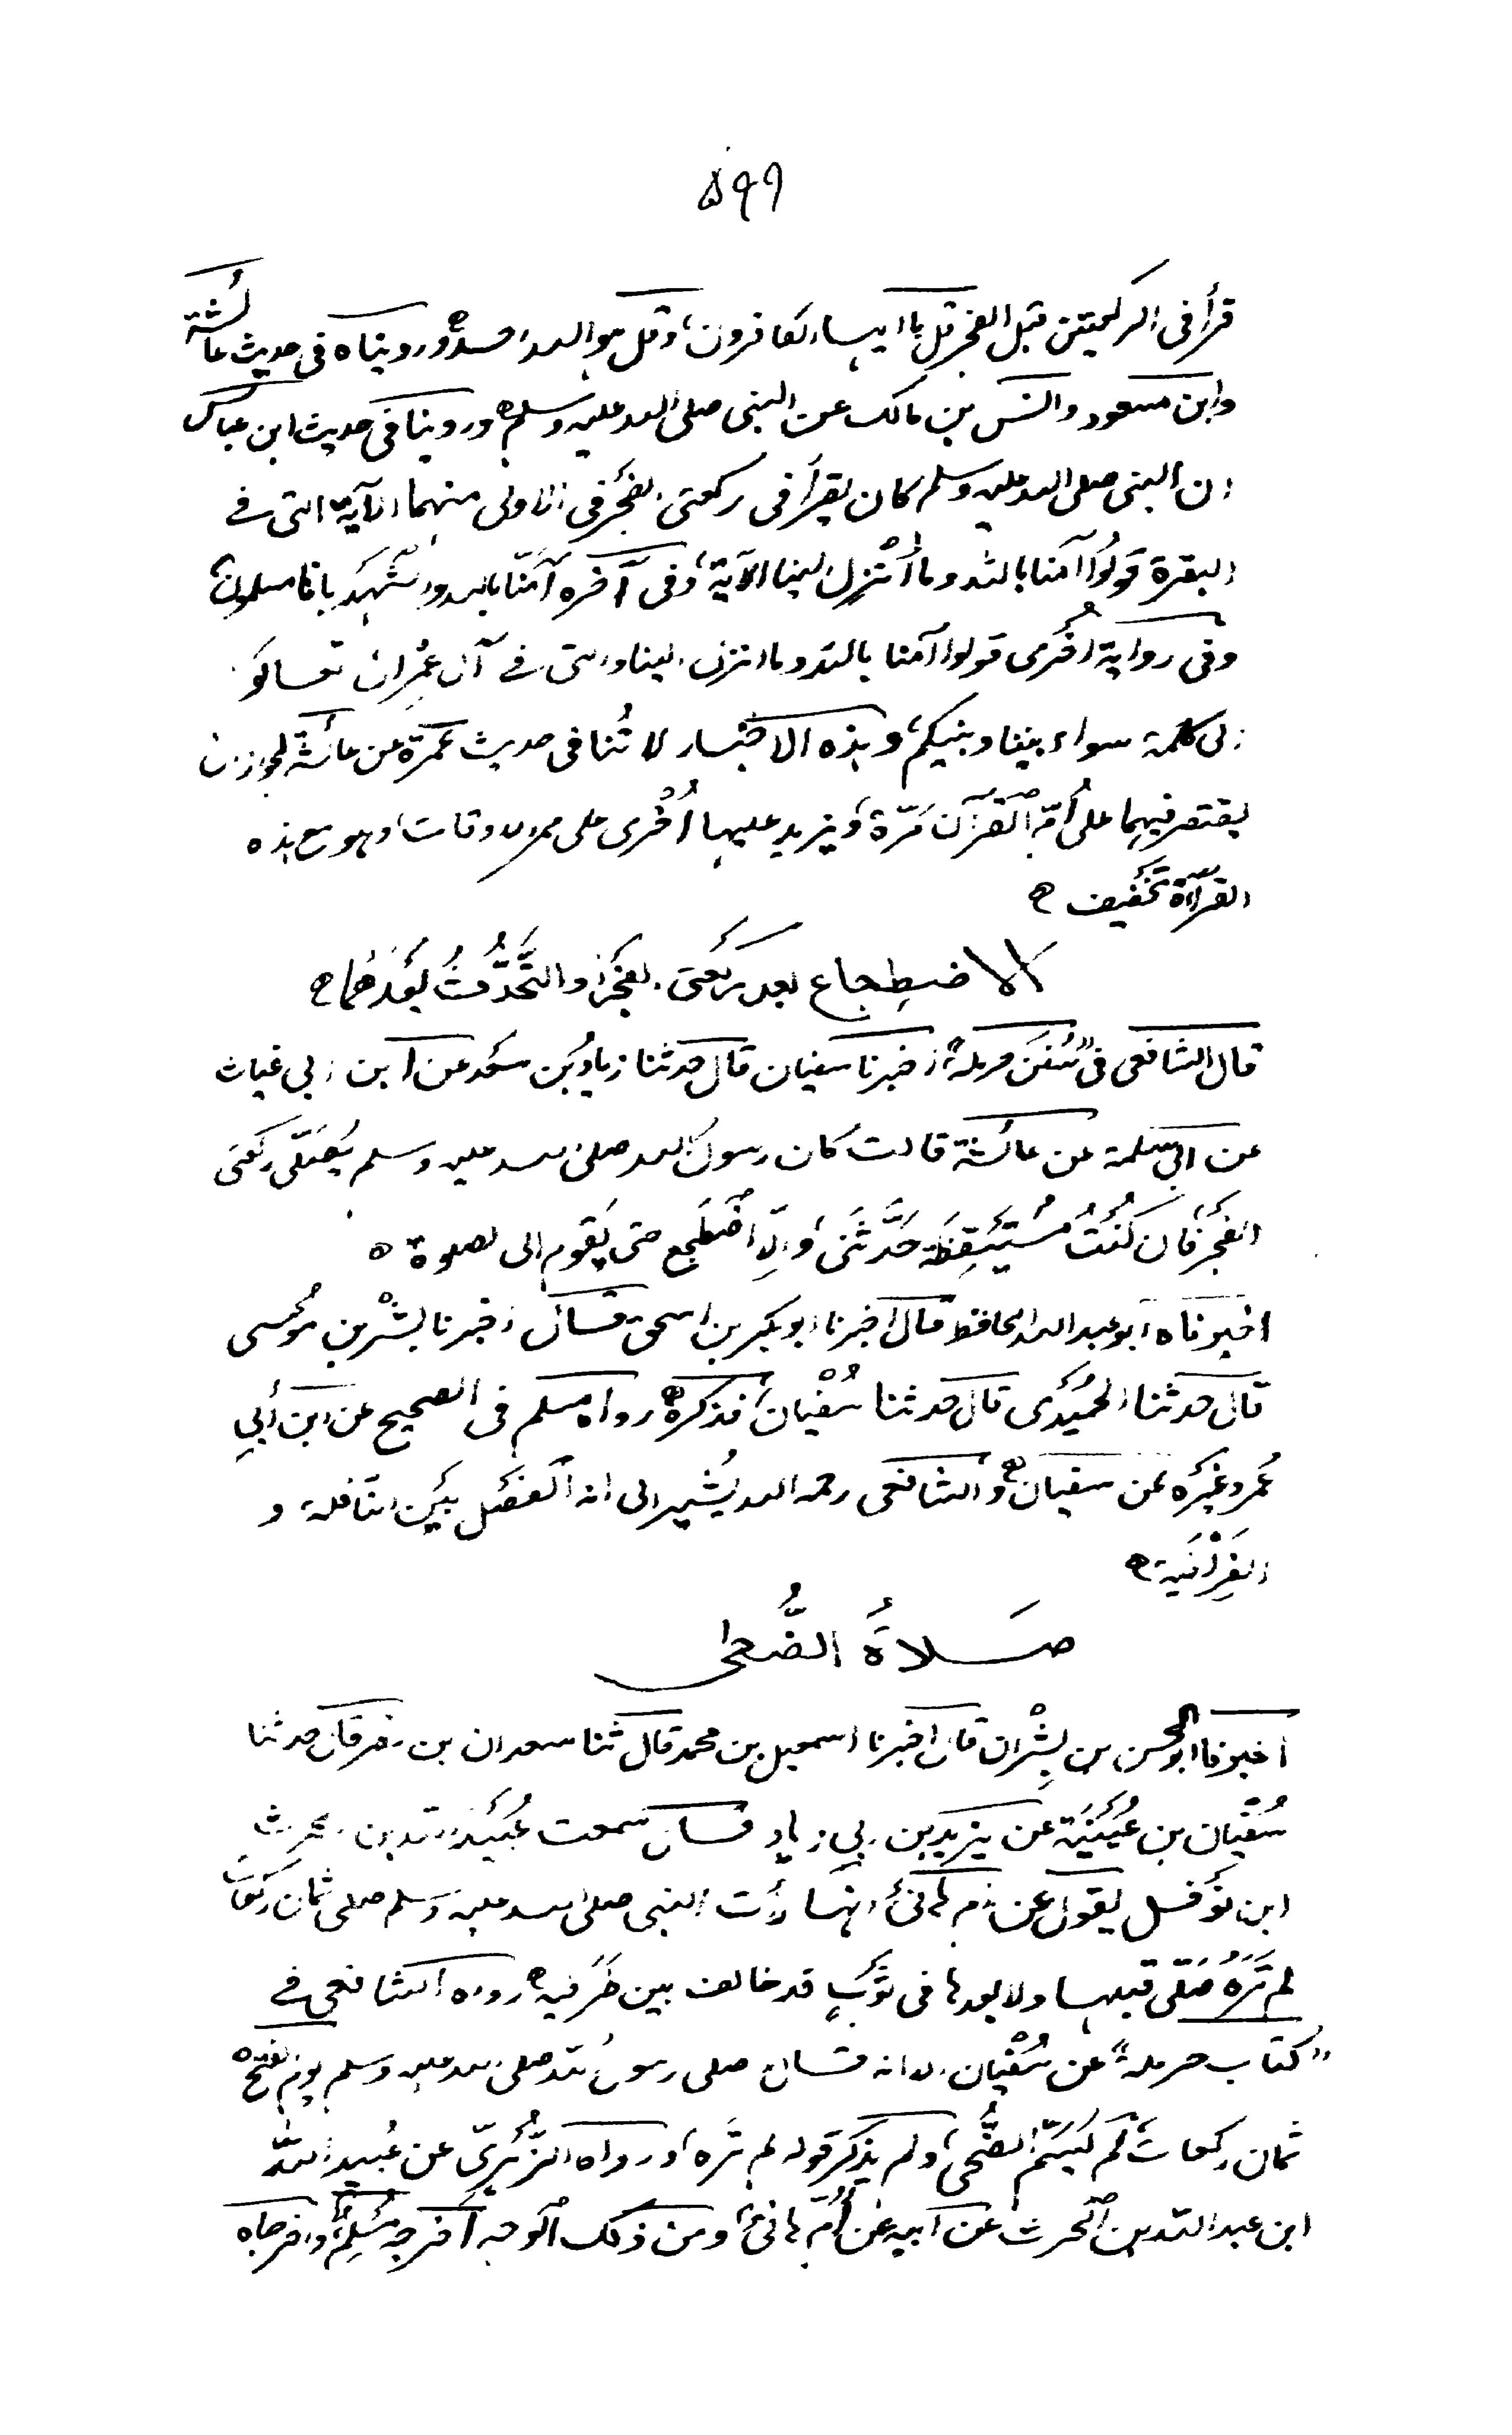 ۵۹۹
قرأ فی الركعتین قبل الفجر قل یا ایها الكافرون، وقل هو الله احد ورویناه فی حدیث عائشة
وابن مسعود وانس بن مالك عن النبی صلی الله علیه وسلم وروینا فی حدیث ابن عباس
ان النبی صلی الله علیه وسلم كان یقرأ فی ركعتی الفجر فی الاولی منهما الآیة التی فی
البقرة قولوا آمنا بالله وما اُنْزِل الینا الآیة، وفی آخره آمنّا بالله واشهد بانا مسلمون
وفی روایة اُخری قولوا آمنا بالله وما انزل الینا والتی فی آل عِمران تعالوا
الی كلمة سواء بیننا وبینكم، وهذه الاخبار لا تُنافی حدیث عمرة عن عائشة لجواز ان
یقتصر فیهما علی اُمّ القرآن مَرّة، ویزید علیها اُخْری علی ممر الاوقات، وهو مع هذه
القرآءة تخفیف
الاضطِجاع بعد ركعتی الفجر، والتَّحَدُّث بَعْدَهُما
قال الشافعی فی "سُنَن حرملة" اخبرنا سفیان قال حدثنا زیادُ بن سَعْد عن ابن ابی غیاث
عن ابی سلمة عن عائشة قالت كان رسول الله صلی الله علیه وسلم یُصَلّی ركعتی
الفجر فان كُنْتُ مُسْتَیْقِظَة حَدَّثَنی، واِلّا اضْطَجع حتی یَقوم الی الصلوة
اخبرناه ابو عبد الله الحافظ قال اخبرنا ابو بكر بن اسحق قال اخبرنا بِشْر بن مُوسی
قال حدثنا الحُمَیْدی قال حدثنا سُفْیان، فذكره رواه مسلم فی الصحیح عن ابن أبی
عُمر وغَیْره عن سفیان والشافعی رحمه الله یُشیر الی انه الفَصْل بَیْن النافلة و
الفَرِیْضَة
صَلاةُ الضُّحی
اخبرنا ابو الحسن بن بِشْران قال اخبرنا اسمعیل بن محمد قال ثنا سعدان بن نصر قال حدثنا
سُفْیان بن عُیَیْنَة عن یزید بن ابی زیاد قال سمعت عُبَیْد الله بن الحرث
ابن نَوْفل یقول عن اُم هانئ انها رأت النبی صلی الله علیه وسلم صلی ثمان ركعات
لم تَرَهُ صَلّی قبلها ولا بعدها فی ثَوْبٍ قد خالف بین طَرَفیه رواه الشافعی فی
"كتاب حرملة" عن سُفْیان الا انه قال صلی رسول الله صلی الله علیه وسلم یوم الفتح
ثمان ركعات، لم یُسَمّ الضُّحی، ولم یذكر قوله لم تَره، ورواه الزُّهْریّ عن عُبید الله
ابن عبد الله بن الحرث عن ابیه عَن اُمّ هانئ، ومن ذلك الوجه اَخْرَجه مُسْلِم، واخرجاه